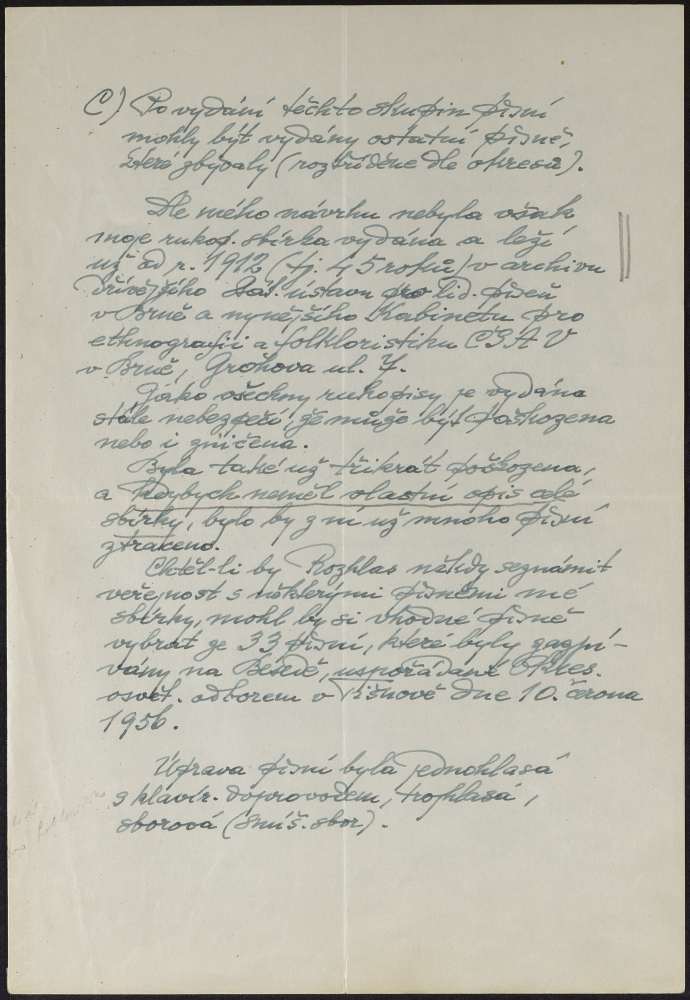 C) Po vydání těchto skupin písní
mohly být vydány ostatní písně,
které zbývaly (roztříděné dle okresů).
Dle mého návrhu nebyla však
moje rukop. sbírka vydána a leží
už od r. 1912 (tj. 45 roků) v archivu
dřívějšího Stát. ústavu pro lid. píseň
v Brně a nynějšího Kabinetu pro
ethnografii a folkloristiku ČSAV
v Brně, Grohova ul. 7.
Jako všechny rukopisy je vydána
stále nebezpečí, že může být poškozena
nebo i zničena.
Byla také už třikrát poškozena,
a kdybych neměl vlastní opis celé
sbírky, bylo by z ní už mnoho písní
ztraceno.
Chtěl-li by Rozhlas někdy seznámit
veřejnost s některými písněmi mé
sbírky, mohl by si vhodné písně
vybrat ze 33 písní, které byly zazpí-
vány na Besedě, uspořádané Okres.
osvět. odborem v Tišnově dne 10. června
1956.
Úprava písní byla jednohlasá
s klavír. doprovodem, trojhlasá,
sborová (smíš. sbor).